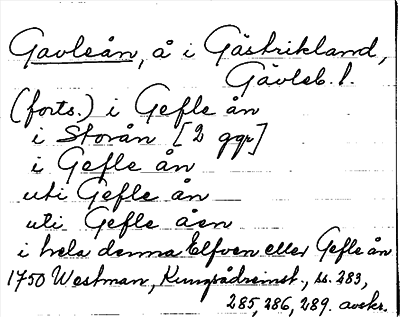 Gavleån, å i Gästrikland,
Gävleb. l.
(forts.) i Gefle ån
i Storån [2 ggr]
i Gefle ån
uti Gefle ån
uti Gefle åen
i hela denna Elfven eller Gefle ån
1750 Westman, Kungsådreinst., ss. 283,
285, 286, 289. avskr.